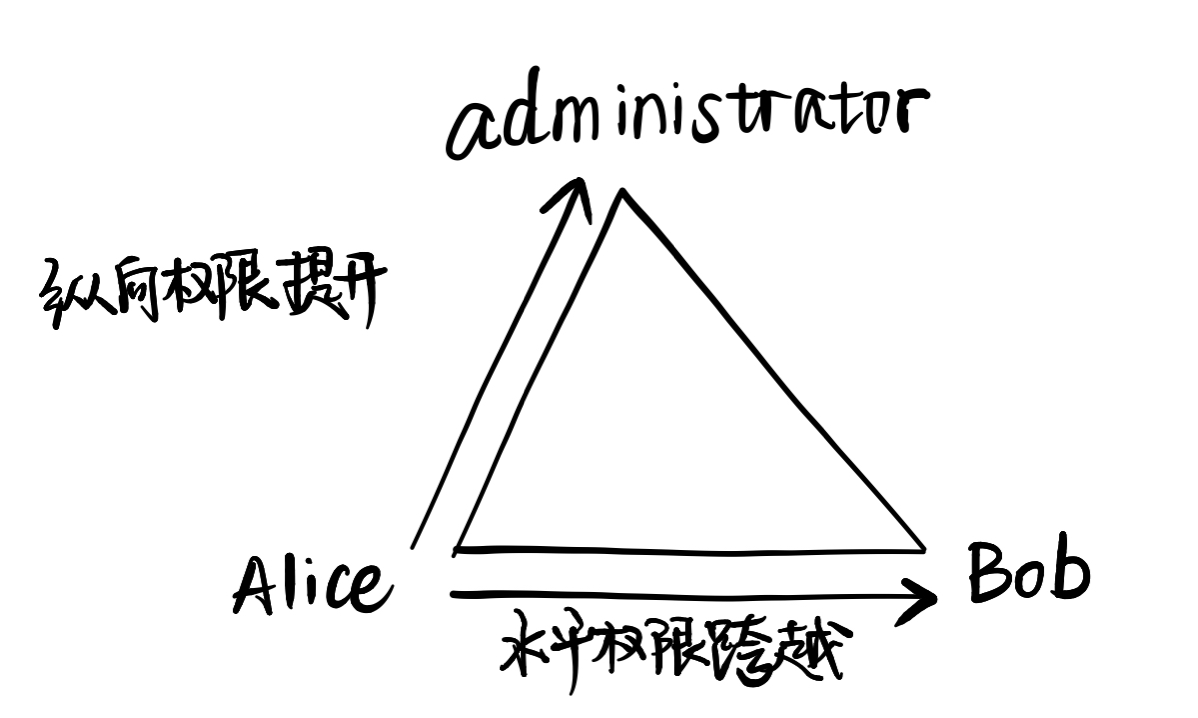 administrator
纵向权限提升
Alice
Bob
水平权限跨越